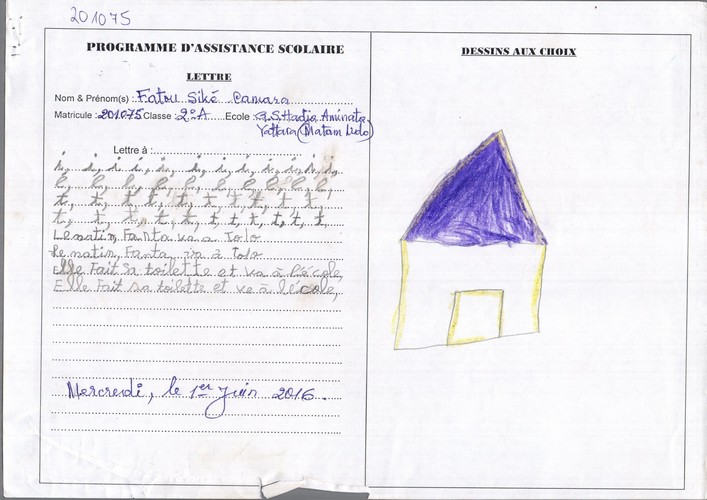 201075
PROGRAMME D'ASSISTANCE SCOLAIRE
LETTRE
Nom & Prénom(s) : Fatou Siké Camara
Matricule : 201075 Classe : 2°A Ecole : G.S. Hadja Aminata
Yattara (Matam Lido)
Lettre à :
i, i, i, i, i, i, i, i, i, i, i, i,
t, t, t, t, t, t, t, t, t, t
t, t, t, t, t, t, t, t, t, t, t
Le matin, Fanta va a Tolo
Le matin, Fanta va à Tolo
Elle Fait sa toilette et va à l'école,
Elle Fait sa toilette et va à l'école,
Mercredi, le 1er Juin 2016.
DESSINS AUX CHOIX